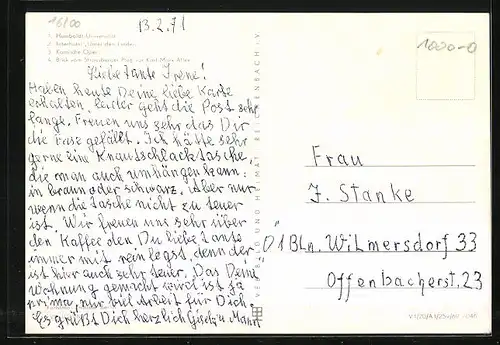 16/00
13.2.71
1000-0
1. Humboldt-Universität
2. Interhotel „Unter den Linden“
3. Komische Oper
4. Blick vom Strausberger Platz zur Karl-Marx-Allee
Liebe Tante Irene!
Haben heute Deine liebe Karte
erhalten, leider geht die Post sehr
lange. Freuen uns sehr das Dir
die Vase gefällt. Ich hätte sehr
gerne eine Knautschlacktasche,
die man auch umhängen kann:
in braun oder schwarz. Aber nur
wenn die Tasche nicht zu teuer
ist. Wir freuen uns sehr über
den Kaffee den Du liebe Tante
immer mit rein legst, denn der
ist hier auch sehr teuer. Das Deine
Wohnung gemacht wird ist ja
prima, nur viel Arbeit für Dich.
Es grüßt Dich herzlich Gisela u. Manfr
VEB BILD UND HEIMAT REICHENBACH I. V.
Frau
J. Stanke
01 Bln. Wilmersdorf 33
Offenbacherst. 23